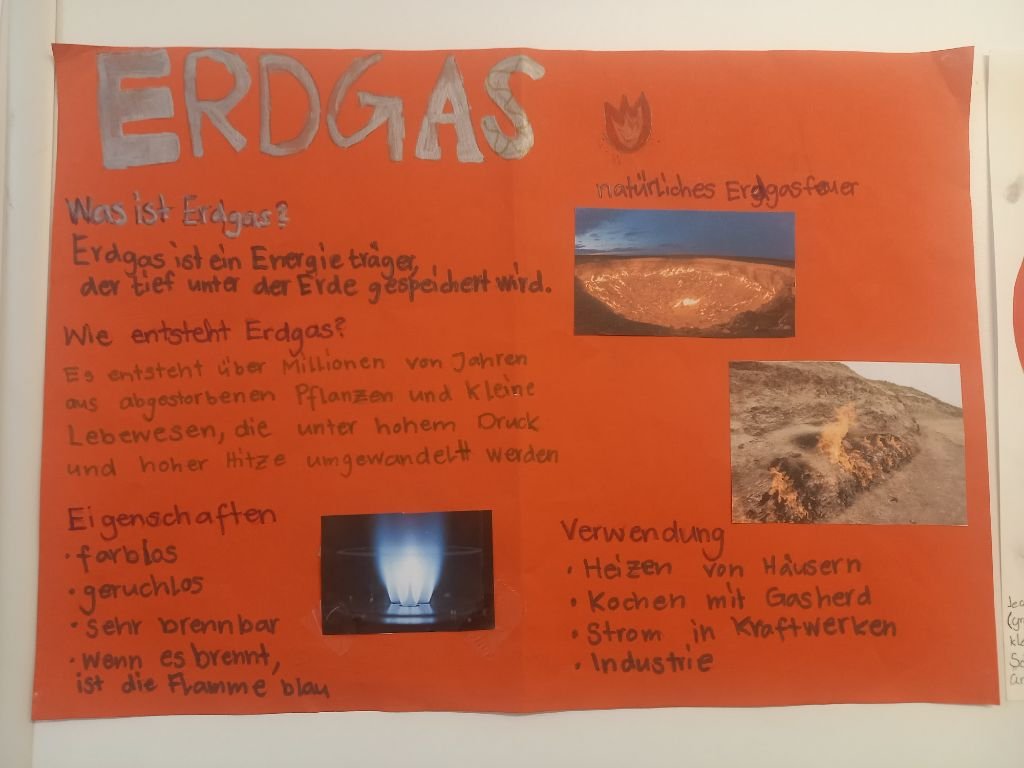 ERDGAS
Was ist Erdgas?
Erdgas ist ein Energieträger,
der tief unter der Erde gespeichert wird.
Wie entsteht Erdgas?
Es entsteht über Millionen von Jahren
aus abgestorbenen Pflanzen und kleine
Lebewesen, die unter hohem Druck
und hoher Hitze umgewandelt werden
Eigenschaften
• farblos
• geruchlos
• sehr brennbar
• wenn es brennt,
ist die Flamme blau
natürliches Erdgasfeuer
Verwendung
• Heizen von Häusern
• Kochen mit Gasherd
• Strom in Kraftwerken
• Industrie